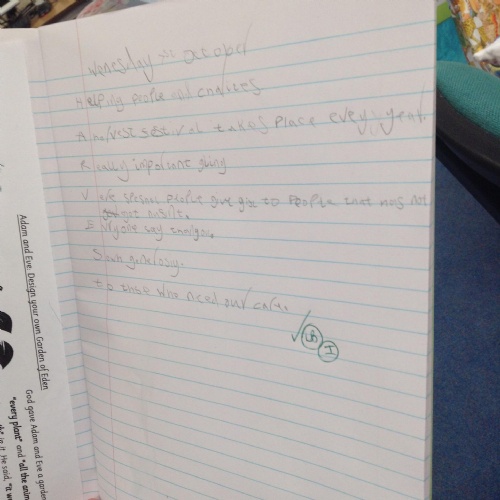 Wenesday october
Helping people and charites
A harvest sestival takes place every year.
Really important giving
V are speshal people give give to people that has not
got
Everyone say thankyou.
Show generosy.
to those who need our care.
Adam and Eve Design your own Garden of Eden
God gave Adam and Eve a garden
"every plant" and "all the anim
in it. He said, "It w